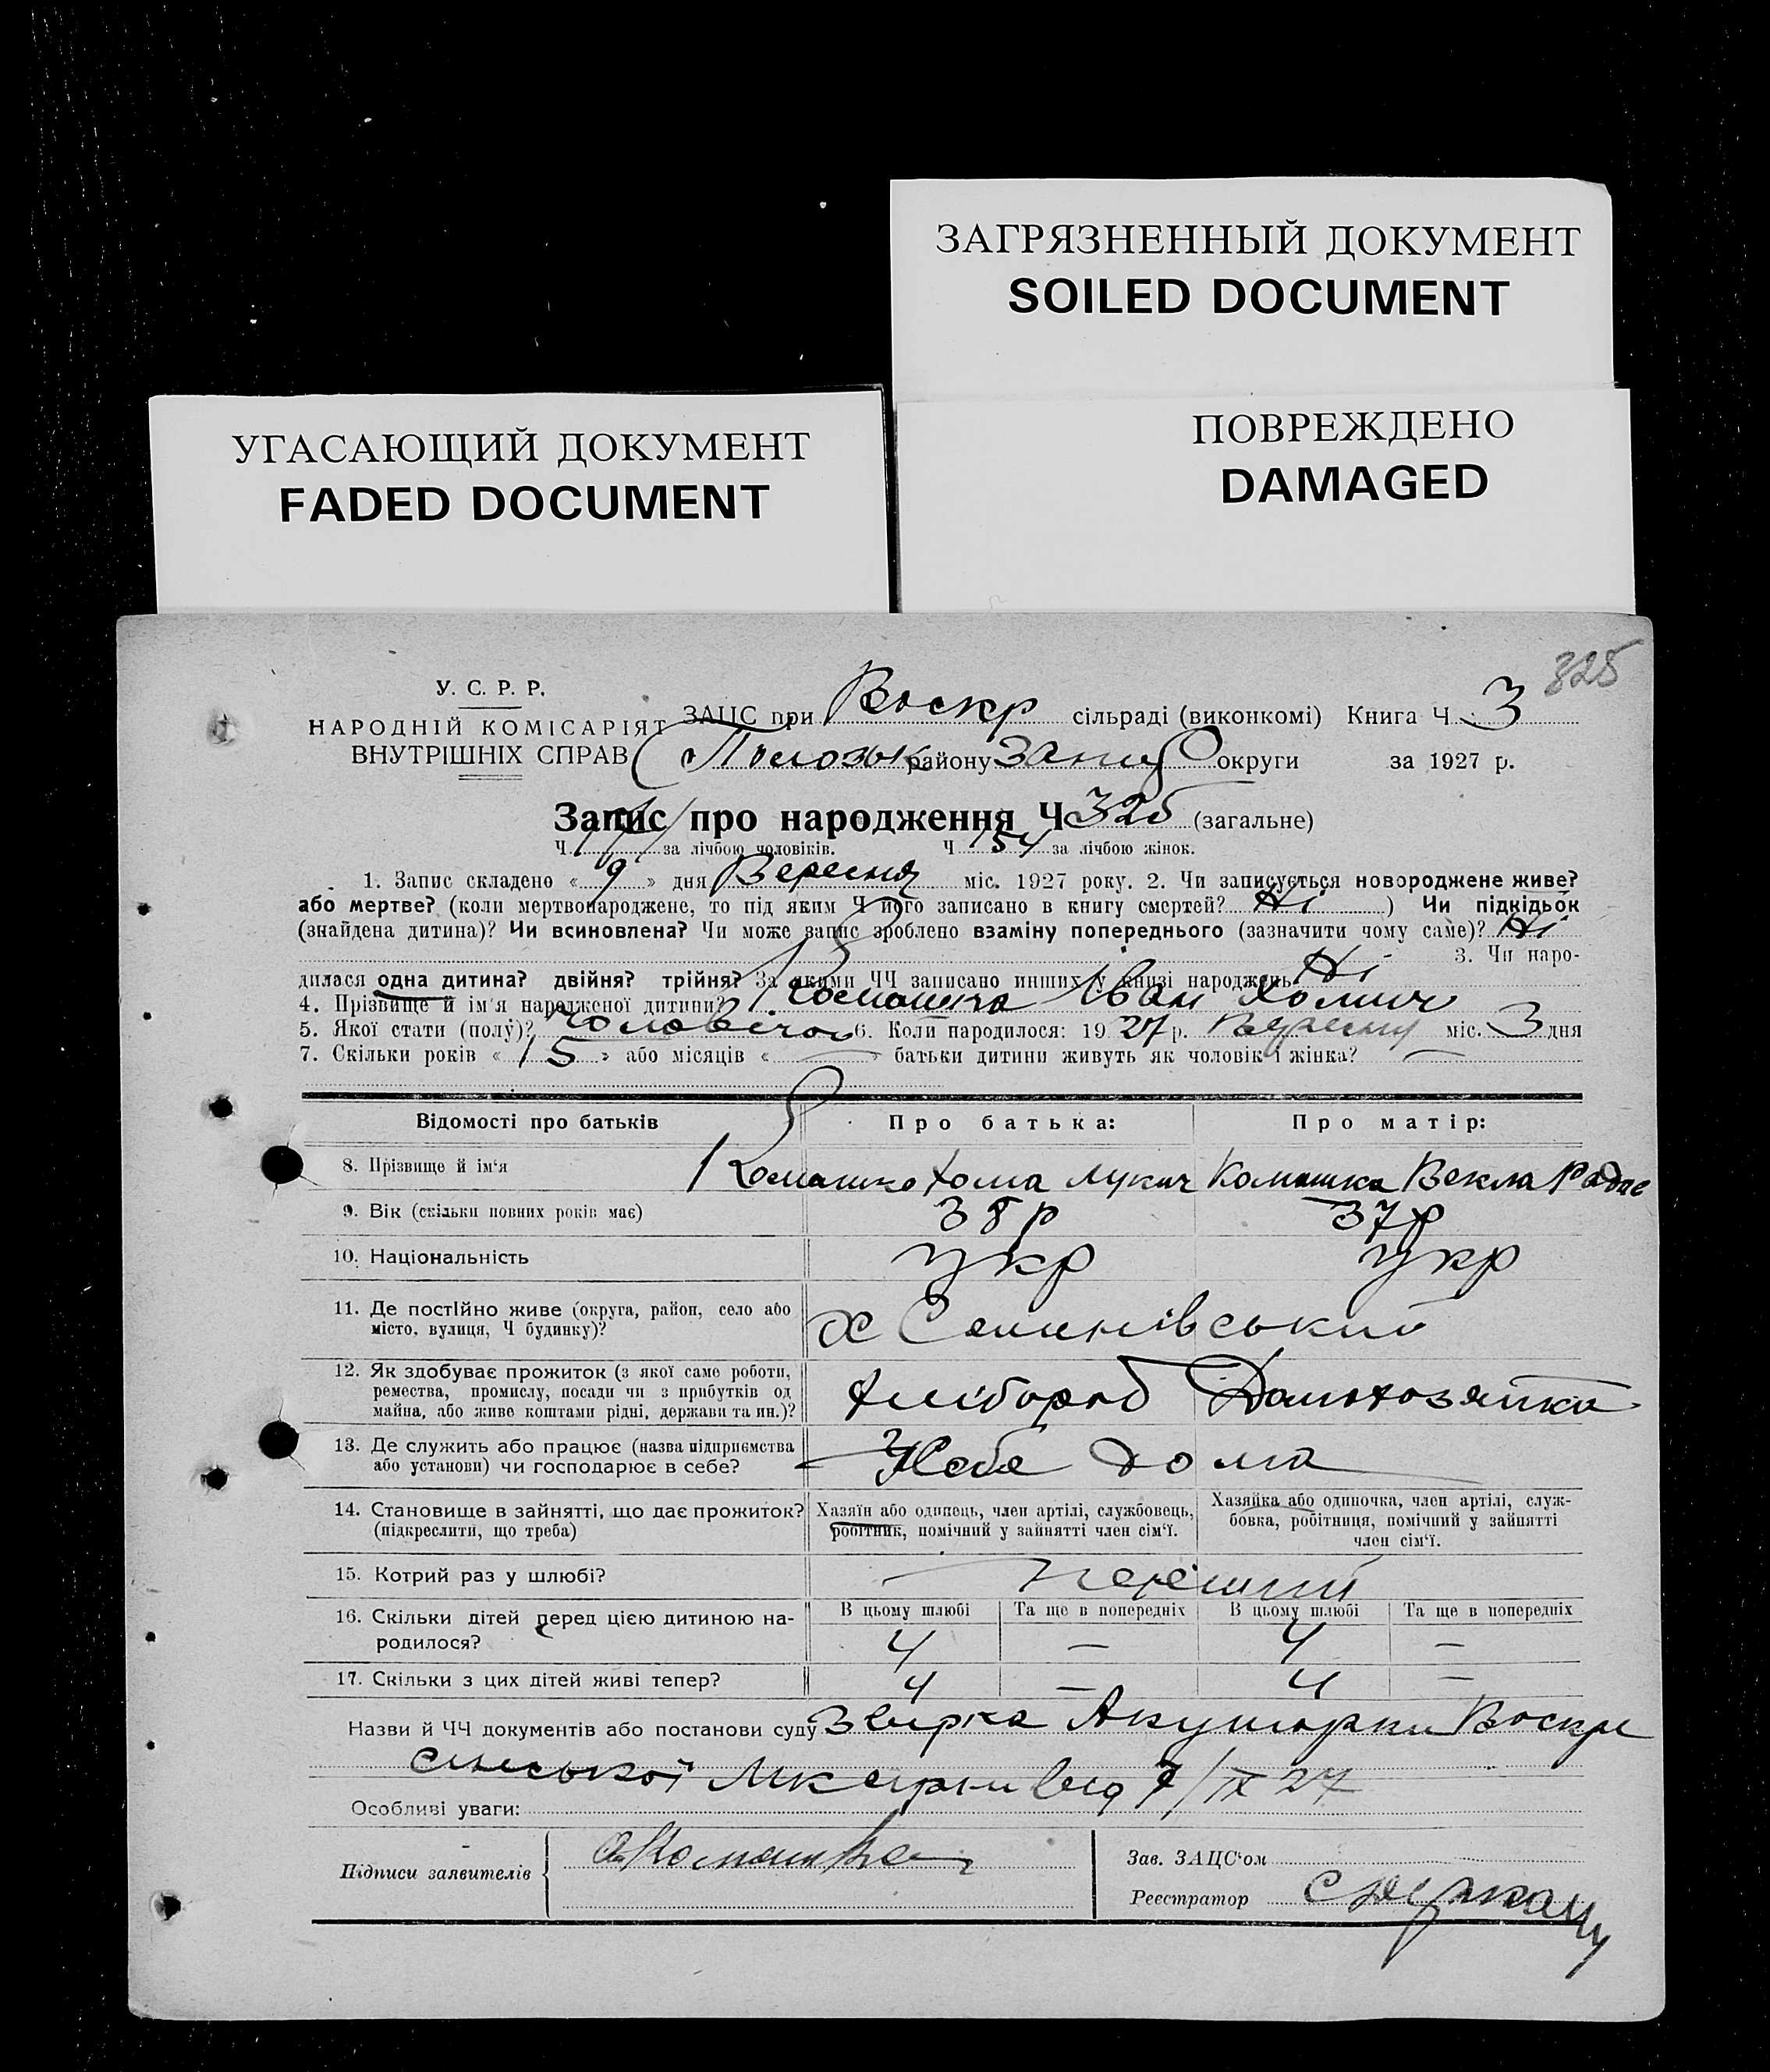 ЗАГРЯЗНЕННЫЙ ДОКУМЕНТ
SOILED DOCUMENT
УГАСАЮЩИЙ ДОКУМЕНТ
FADED DOCUMENT
ПОВРЕЖДЕНО
DAMAGED
325
У. С. Р. Р.
НАРОДНІЙ КОМІСАРІЯТ
ВНУТРІШНІХ СПРАВ
ЗАЦС при Воскр сільраді (виконкомі) Книга Ч. 3
району округи за 1927 р.
Запис про народження Ч 325 (загальне)
Ч. 171 за лічбою чоловіків. Ч 154 за лічбою жінок.
1. Запис складено « 9 » дня Вересня міс. 1927 року. 2. Чи записується новороджене живе?
або мертве? (коли мертвонароджене, то під яким Ч його записано в книгу смертей? Ні ) Чи підкідьок
(знайдена дитина)? Чи всиновлена? Чи може запис зроблено взаміну попереднього (зазначити чому саме)? Ні
3. Чи наро-
дилася одна дитина? двійня? трійня? За якими ЧЧ записано инших у книзі народжень Ні
4. Прізвище й ім'я народженої дитини? Комашко Іван Хомич
5. Якої стати (полу)? Чоловічої 6. Коли народилося: 1927 р. Вересня міс. 3 дня
7. Скільки років « 15 » або місяців « — » батьки дитини живуть як чоловік і жінка? —
Відомості про батьків Про батька: Про матір:
8. Прізвище й ім'я Комашко Хома Лукич Комашка Векла
9. Вік (скільки повних років має) 38 р 37 р
10. Національність укр укр
11. Де постійно живе (округа, район, село або
місто, вулиця, Ч будинку)? х Семинівський
12. Як здобуває прожиток (з якої саме роботи,
ремества, промислу, посади чи з прибутків од
майна, або живе коштами рідні, держави та ин.)? Хлібороб Домохозяйка
13. Де служить або працює (назва підприємства
або установи) чи господарює в себе? У Себе дома
14. Становище в зайнятті, що дає прожиток?
(підкреслити, що треба)
Хазяїн або одинець, член артілі, службовець,
робітник, помічний у зайнятті член сім'ї.
Хазяйка або одиночка, член артілі, служ-
бовка, робітниця, помічний у зайнятті
член сім'ї.
15. Котрий раз у шлюбі? перший
16. Скільки дітей перед цією дитиною на-
родилося?
В цьому шлюбі Та ще в попередніх В цьому шлюбі Та ще в попередніх
4 — 4 —
17. Скільки з цих дітей живі тепер? 4 — 4 —
Назви й ЧЧ документів або постанови суду Акушорки Воскре
сенської від 7/IX 27
Особливі уваги:
Підписи заявителів Комашка
Зав. ЗАЦС'ом
Реєстратор